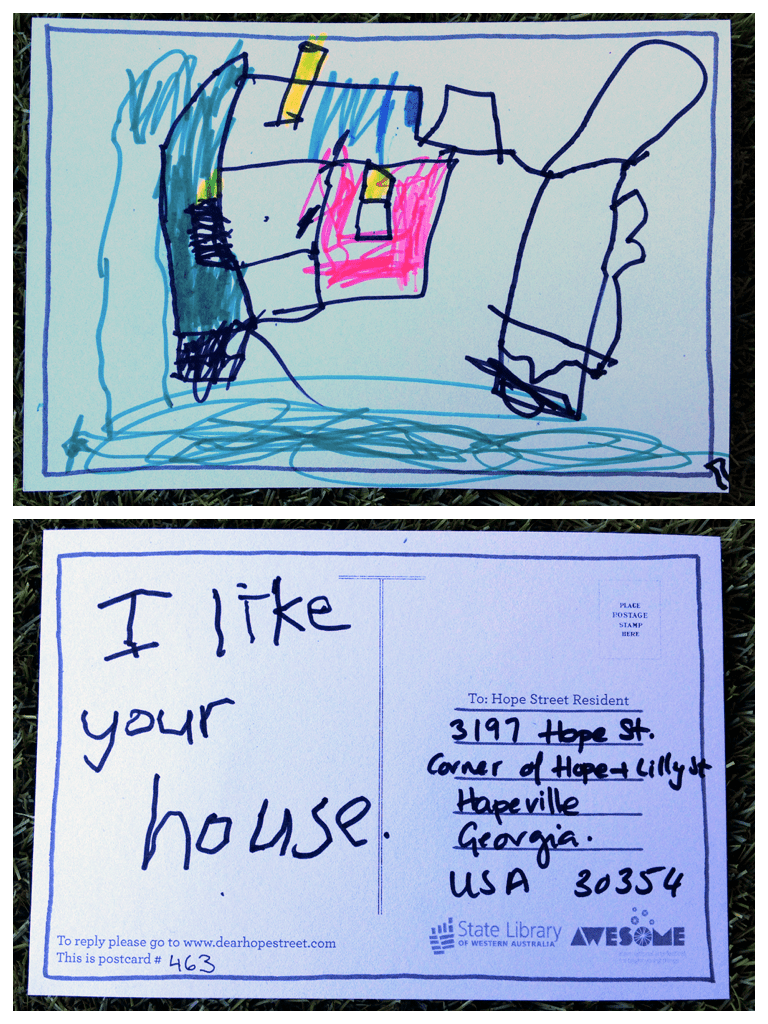 I like
your
house.
PLACE
POSTAGE
STAMP
HERE
To: Hope Street Resident
3197 Hope St.
Corner of Hope + Lilly St
Hapeville
Georgia.
USA 30354
To reply please go to www.dearhopestreet.com
This is postcard # 463
State Library
OF WESTERN AUSTRALIA
AWESOME